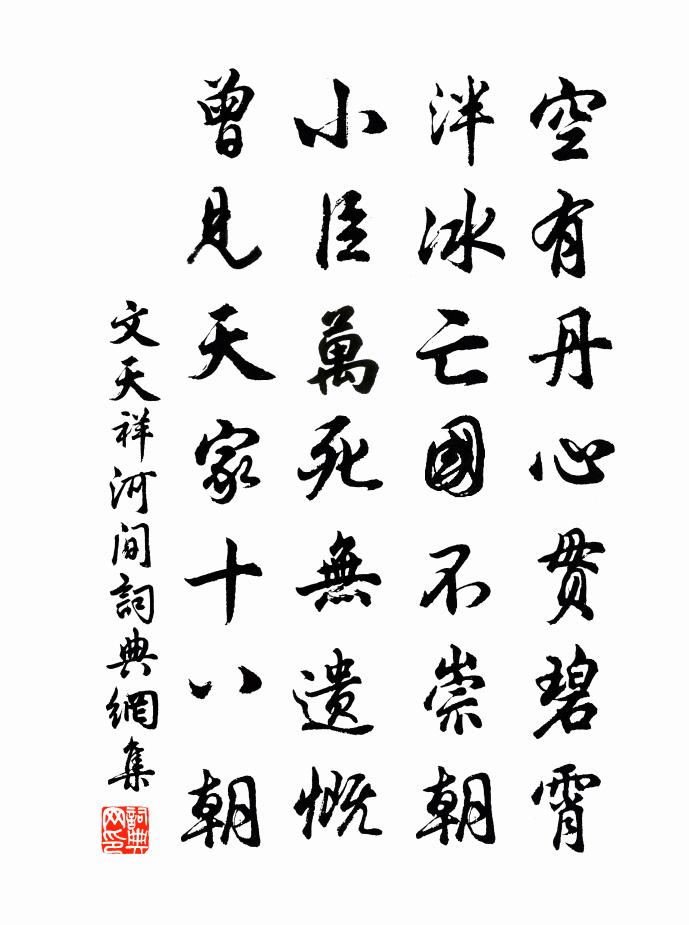 空有丹心貫碧霄
泮冰亡國不崇朝
小臣萬死無遺慨
曾見天家十八朝
文天祥河間詞典網集
詞典网印